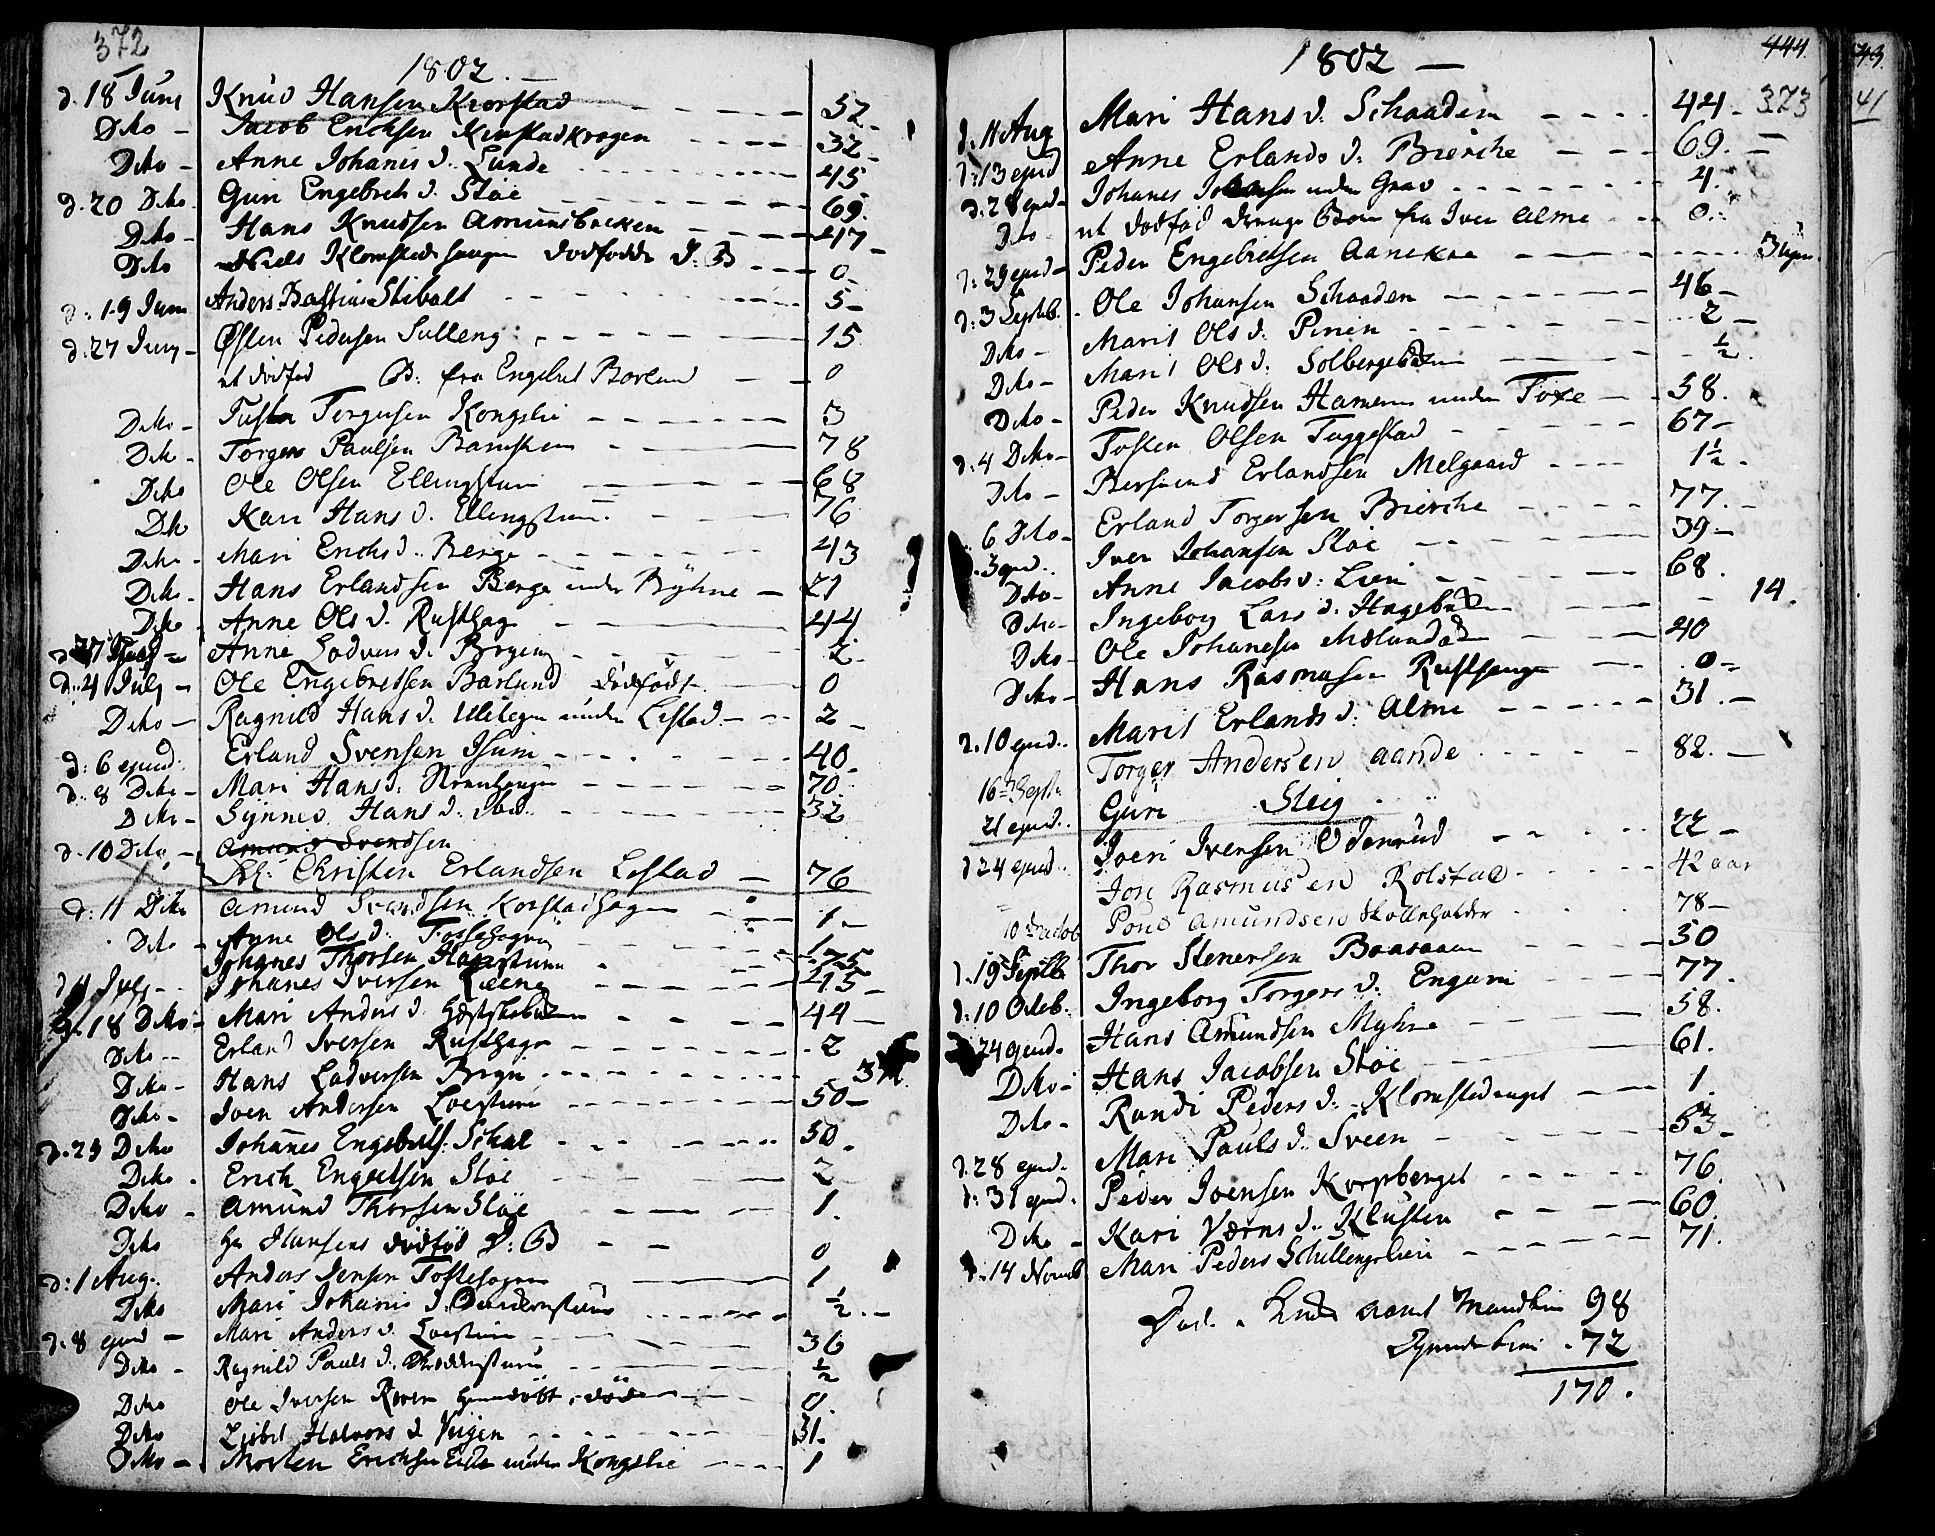 372
1802. —
d. 18 Juni Knud Hansen Kiorstad 52
Dito – Jacob Erichsen Kiorstadkragen 32
Dito – Anne Johanis d. Lunde 45
d. 20 Dito Guri Engebrets d. Stöe 69.
Dito – Hans Knudsen Amunsbacken 47
Dito Niels Klomstadhaugen dödfödde D. B 0
d: 19 Juni Anders Bastius Stibolt 5
d. 27 Juny – Østen Pedersen Sulleng 15
et dödfød B: fra Engebret Borlund 0
Dito – Tosten Torgersen Kongslie 3
Dito – Torger Paulsen 78
Dito Ole Olsen Ellingstuen 68
Dito Kari Hans d. Ellingstuen. 76
Dito – Mari Erichs d. Berge 43
Dito – Hans Erlandsen Berge under Ryhne 21
Dito – Anne Ols d. Rusthag 44
d. 27 Anne Lodvers d. Brygen 2
d. 4 July – Ole Engebretsen Barlund dödfödt 0
Dito – Ragnild Hans d. Ulilegen under Listad 2
d: 6 ejusd. Erland Svensen Isum 40
d. 8 Dito – Mari Hans d. 70
Dito – Synnev Hans d. 32
d. 10 Dito – Amund Svendsen
Christen Erlandsen Listad 76
d: 11 Dito Amund Svendsen Korstadhagen 1
Dito – Anne Ols d. Fossehagen 1
Johannes Thorsen 75
d 11 July Johanes Iversen Leene 45
d. 18 Dito – Mari Anders d. 44
Dito – Erland Iversen Rusthage 2
Dito – Hans Lodversen Brygen 3
Dito – Joen Andersen Loestuen 50
d. 25 Dito Johannes Engebrets. Schal 50
Dito – Erich Engebretsen Stoe 2
Dito – Amund Thorsen Stöe 1.
Dito Hr Hansens dödfød D: B 0
d: 1 Aug. Anders Jensen Toftehagen 1
Dito Mari Johanis d. ½
d. 8 ejusd – Mari Anders d. Loestuen 36
Dito – Ragnild Pauls d. ½
Dito Ole Iversen hjemdöbt, död 0.
Dito Lisbet Halvors d Veigen 31
Dito – Morten Erichsen under Kongslie 1
1802 — 444.
373
d. 11 Aug Mari Hans d. Schaaden 44
d. 13 ejusd Anne Erlands d. Bierche 69.
d. 28 ejusd Johanes Johansen under Grav 4
Dito et dödföd drenge Barn fra Iver Alme 0
d: 29 ejusd Peder Engebretsen Aanekre 3 Uger
d: 3 Septb. Ole Johansen Schaaden 46
Dito – Marit Ols d. 2
Dito – Marit Ols d. ½
Dito – Peder Knudsen Hameren under Toxe 58.
d: 4 Dito – Tosten Olsen Tuggestad 67
Dito – Bersvend Erlandsen Melgaard 1½
6 Dito – Erland Torgersen Bierche 77.
3 ejusd. Iver Johansen Stöe 39
Dito – Anne Jacobs d: Lien 68.
Dito – Ingeborg Lars d. 14.
Dito – Ole Johanesen 40
Dito – Hans Rasmusen Rusthaugen 0
d. 10 ejusd. Marit Erlands d. Alme 31.
16 Septbr Torger Andersen Aande 82.
21 ejusd. Guri Steig
d 24 ejusd. Joen Iversen Odenrud 22
Jon Rasmusen Rolstad 42 aar
10 Octob Poul Amundsen Skolleholder 78
d. 19 Septb. Thor Stenersen Baasaaen 50
d. 10 Octob. Ingeborg Torgers d. Engum 77
24 ejusd. Hans Amundsen Myhre 58.
Dito – Hans Jacobsen Stöe 61.
Dito – Randi Peders d. Klomstadenget 1.
d. 28 ejusd. Mari Pauls d. Sveen 53
d: 31 ejusd. Peder Joensen Korpberget 76
Dito – Kari Værns d. Klusten 60.
d. 14 Novb Mari Peders Schillengslien 71.
Död Mandkiøn 98
Qvindekiøn 72
170.